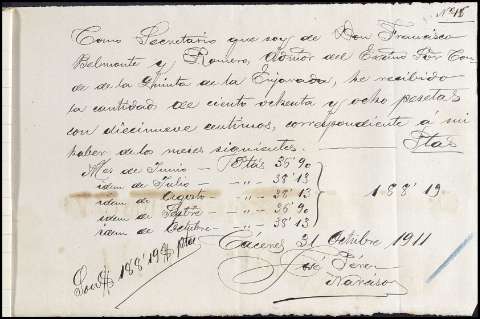 Nº 18
Como Secretario que soy de Don Francisco
Belmonte y Romero, Admor del Excmo Sor Con-
de de la Quinta de la Enjarada, he recibido
la cantidad de ciento ochenta y ocho pesetas
con diecinueve centimos, correspondiente á mi
haber de los meses siguientes. Ptas
Mes de Junio — Ptas 36'90
idem de Julio — " — 38'13
idem de Agosto — " — 38'13 } 188'19
idem de Septbre — " — 36'90
idem de Octubre — " — 38'13
Caceres 31 Octubre 1911
Son 188'19 ptas
José Pérez
Narciso